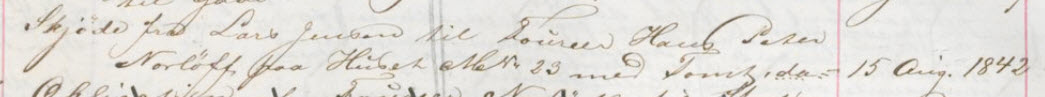 til
Skjöde fra Lars Jensen til Foureer Hans Peter
Norlöff paa Huset No 23 med Tomt, da= 15 Aug. 1842